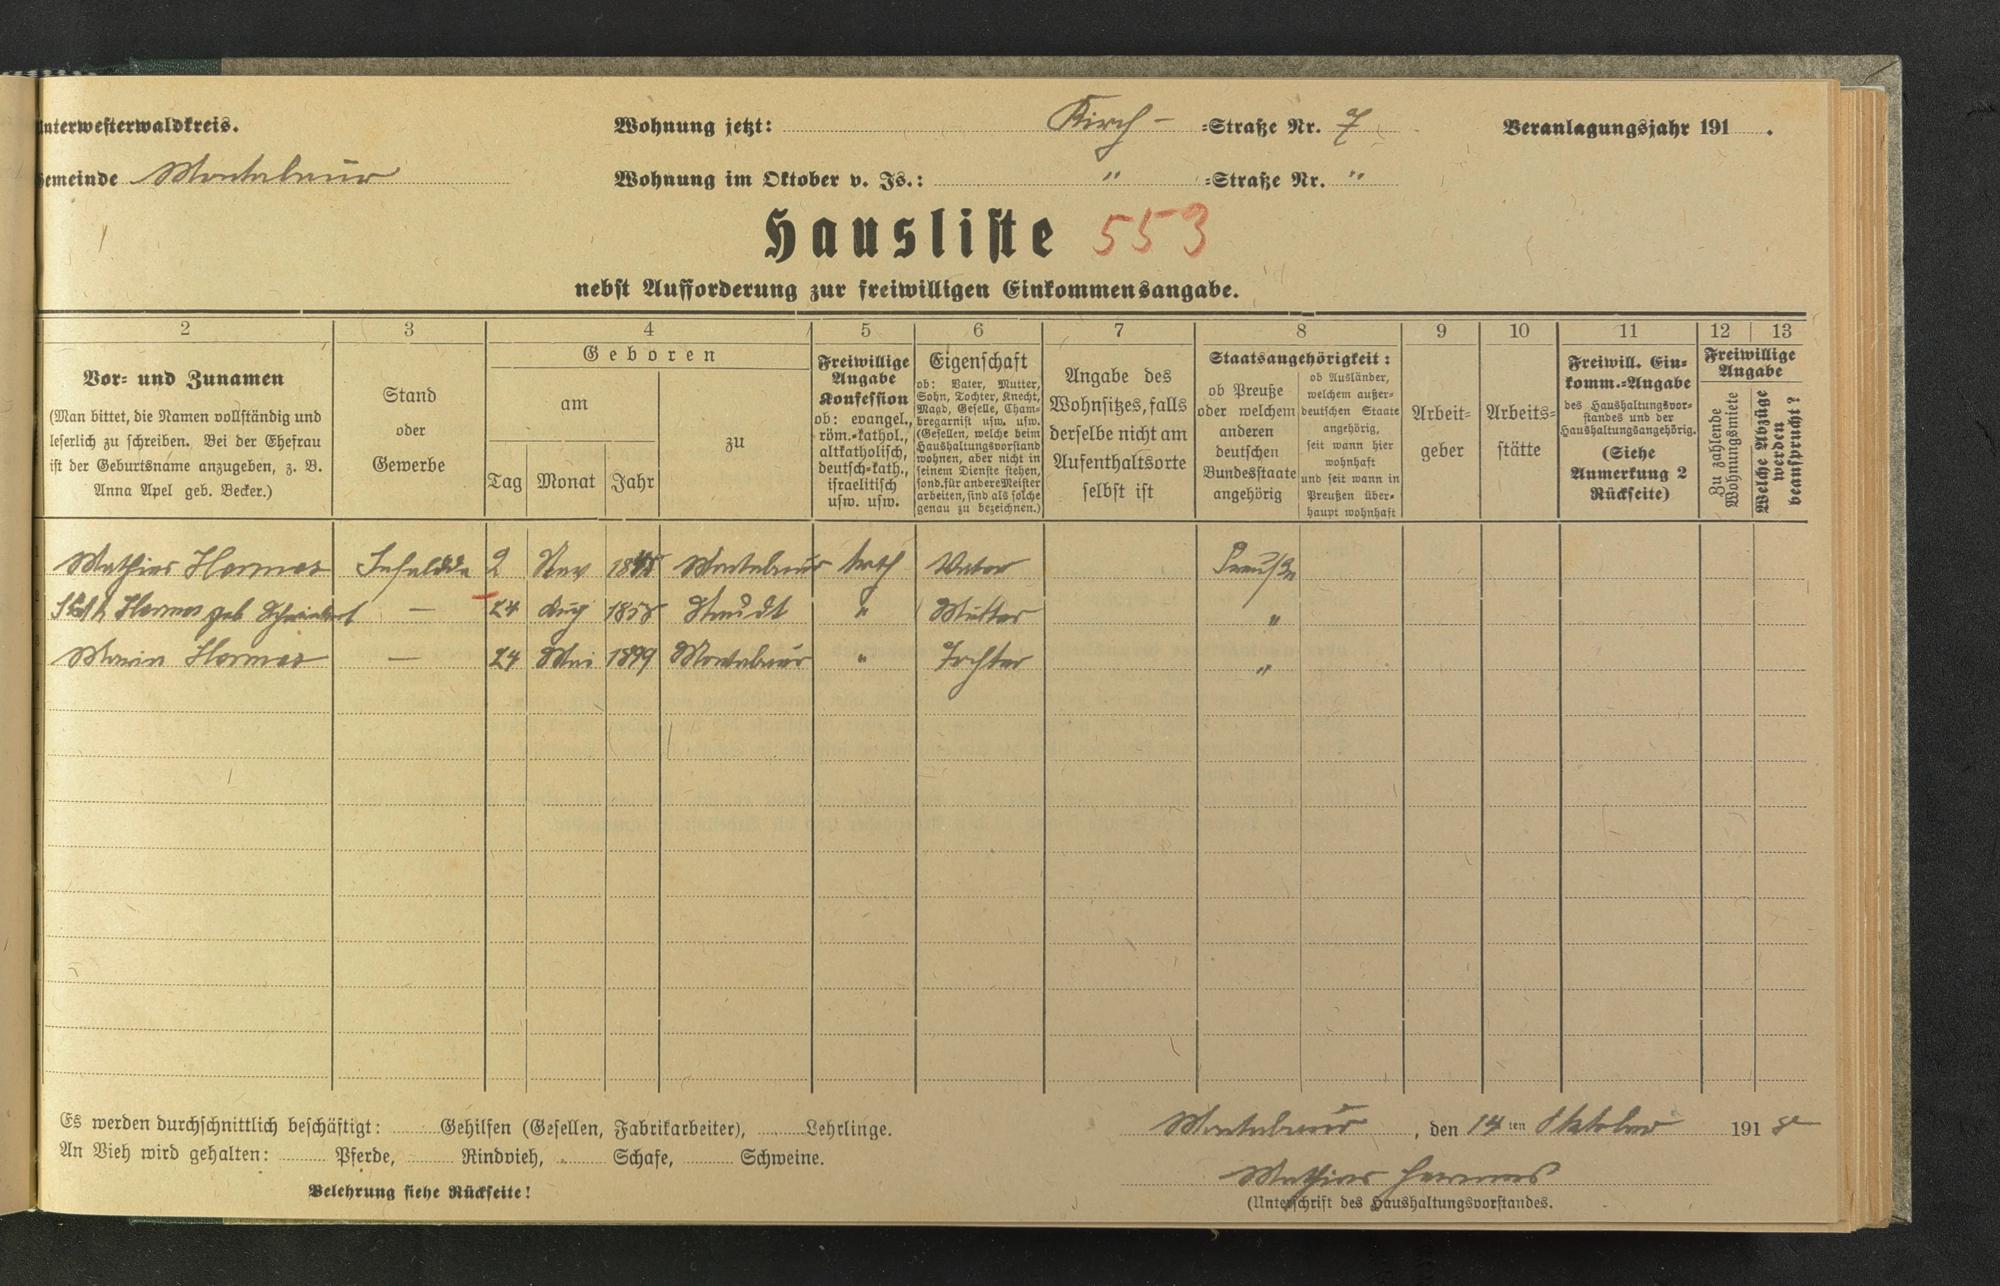 Unterwesterwaldkreis. Wohnung jetzt: Kirch- =Straße Nr. 7 Veranlagungsjahr 191 .
Gemeinde Montabaur Wohnung im Oktober v. Js.: " =Straße Nr. "
Hausliste 553
nebst Aufforderung zur freiwilligen Einkommensangabe.
2 3 4 5 6 7 8 9 10 11 12 13
Vor- und Zunamen
(Man bittet, die Namen vollständig und
leserlich zu schreiben. Bei der Ehefrau
ist der Geburtsname anzugeben, z. B.
Anna Apel geb. Becker.)
Stand
oder
Gewerbe
Geboren
am
Tag Monat Jahr
zu
Freiwillige
Angabe
Konfession
ob: evangel.,
röm.-kathol.,
altkatholisch,
deutsch-kath.,
israelitisch
usw. usw.
Eigenschaft
ob: Vater, Mutter,
Sohn, Tochter, Knecht,
Magd, Geselle, Cham-
bregarnist usw. usw.
(Gesellen, welche beim
Haushaltungsvorstand
wohnen, aber nicht in
seinem Dienste stehen,
sond. für andere Meister
arbeiten, sind als solche
genau zu bezeichnen.)
Angabe des
Wohnsitzes, falls
derselbe nicht am
Aufenthaltsorte
selbst ist
Staatsangehörigkeit:
ob Preuße
oder welchem
anderen
deutschen
Bundesstaate
angehörig
ob Ausländer,
welchem außer-
deutschen Staate
angehörig,
seit wann hier
wohnhaft
und seit wann in
Preußen über-
haupt wohnhaft
Arbeit-
geber
Arbeits-
stätte
Freiwill. Ein-
komm.-Angabe
des Haushaltungsvor-
standes und der
Haushaltungsangehörig.
(Siehe
Anmerkung 2
Rückseite)
Freiwillige
Angabe
Zu zahlende
Wohnungsmiete
Welche Abzüge
werden
beansprucht?
Mathias Hermes 2 Nov Montabaur kath Vater
Hermes geb — 24 Aug 1858 Staudt " Mutter "
Maria Hermes — 24 Mai 1899 Montabaur " Tochter "
Es werden durchschnittlich beschäftigt: Gehilfen (Gesellen, Fabrikarbeiter), Lehrlinge.
An Vieh wird gehalten: Pferde, Rindvieh, Schafe, Schweine.
Belehrung siehe Rückseite!
Montabaur, den 14ten Oktober 1918
Mathias Hermes
(Unterschrift des Haushaltungsvorstandes.